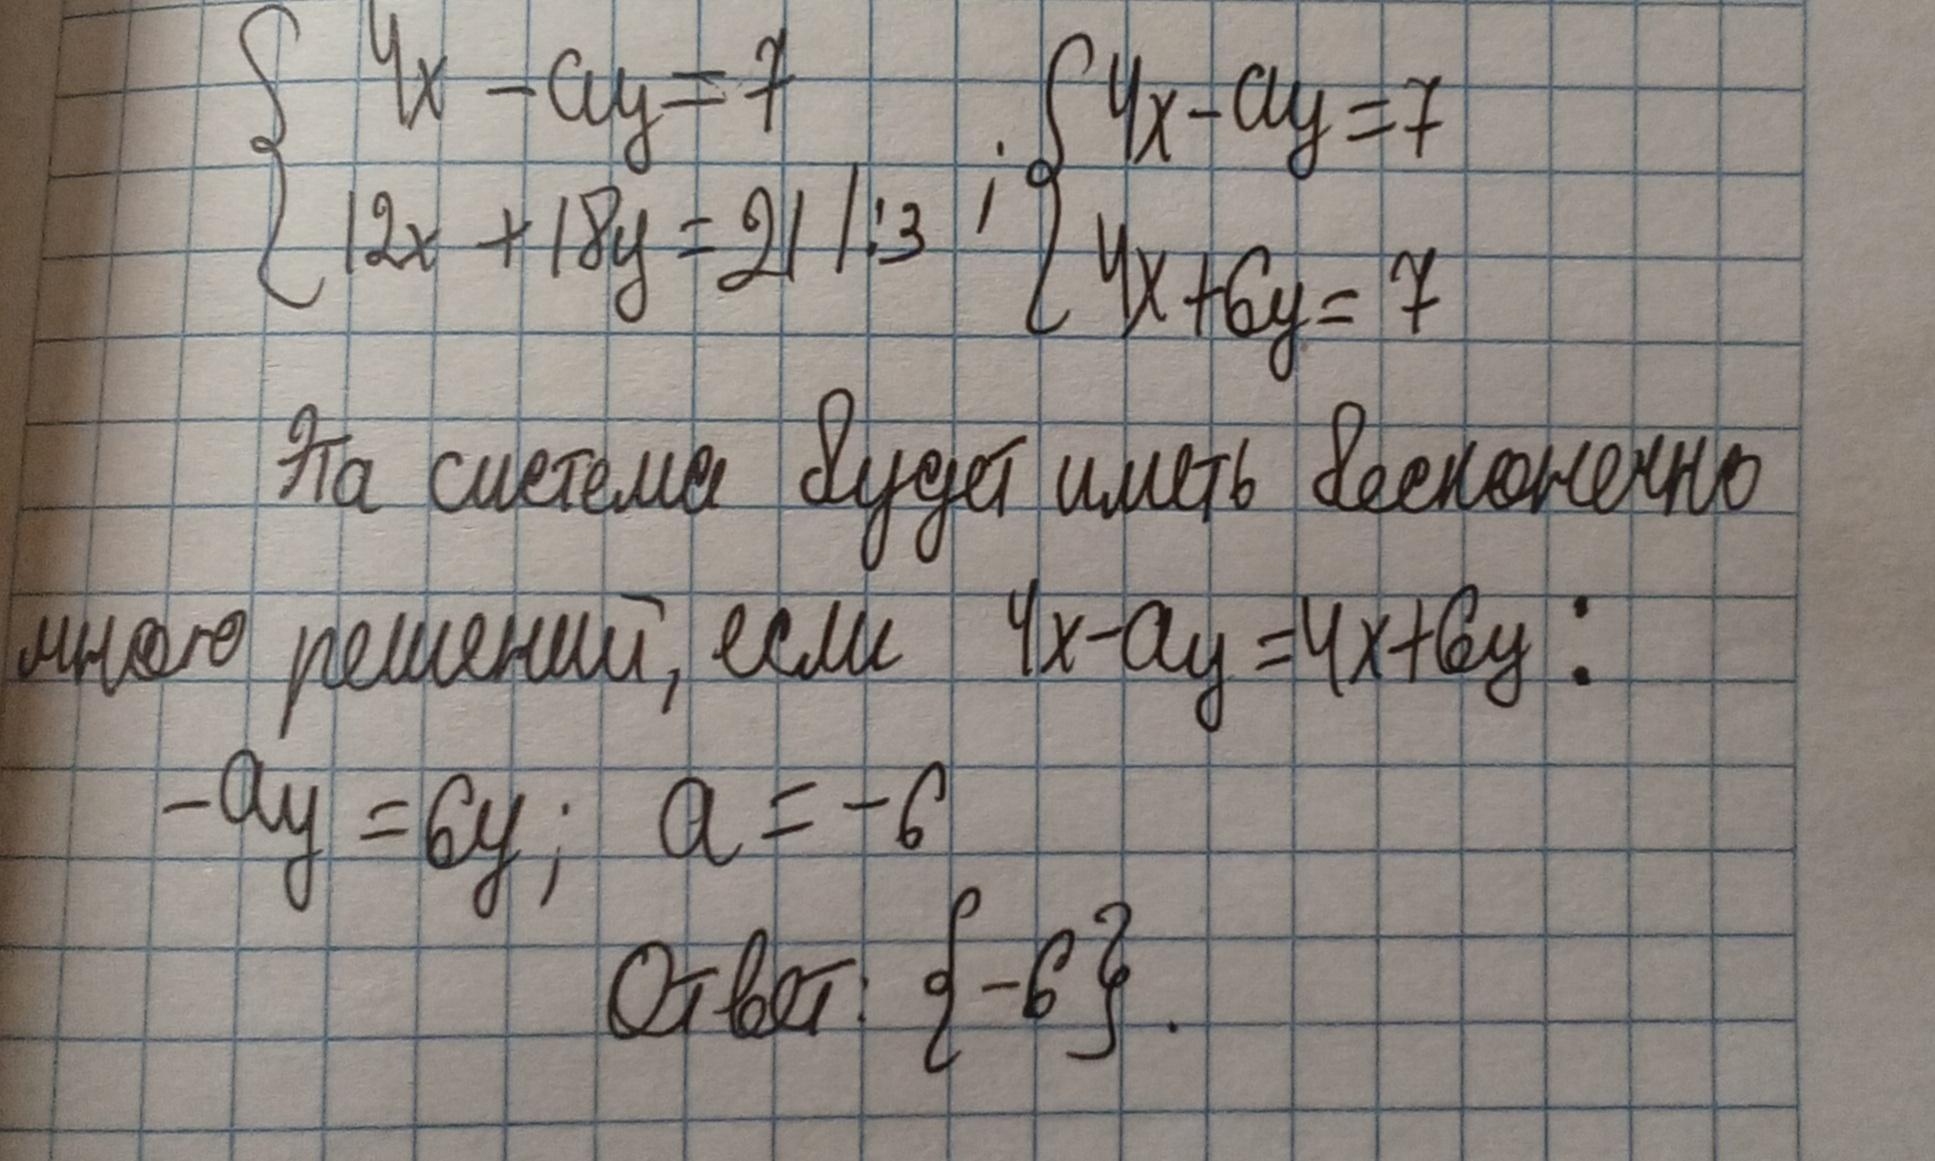 { 4x - ay = 7 ; { 4x - ay = 7
12x + 18y = 21 |:3 4x + 6y = 7
Эта система будет иметь бесконечно
много решений, если 4x - ay = 4x + 6y :
-ay = 6y; a = -6
Ответ: {-6}.